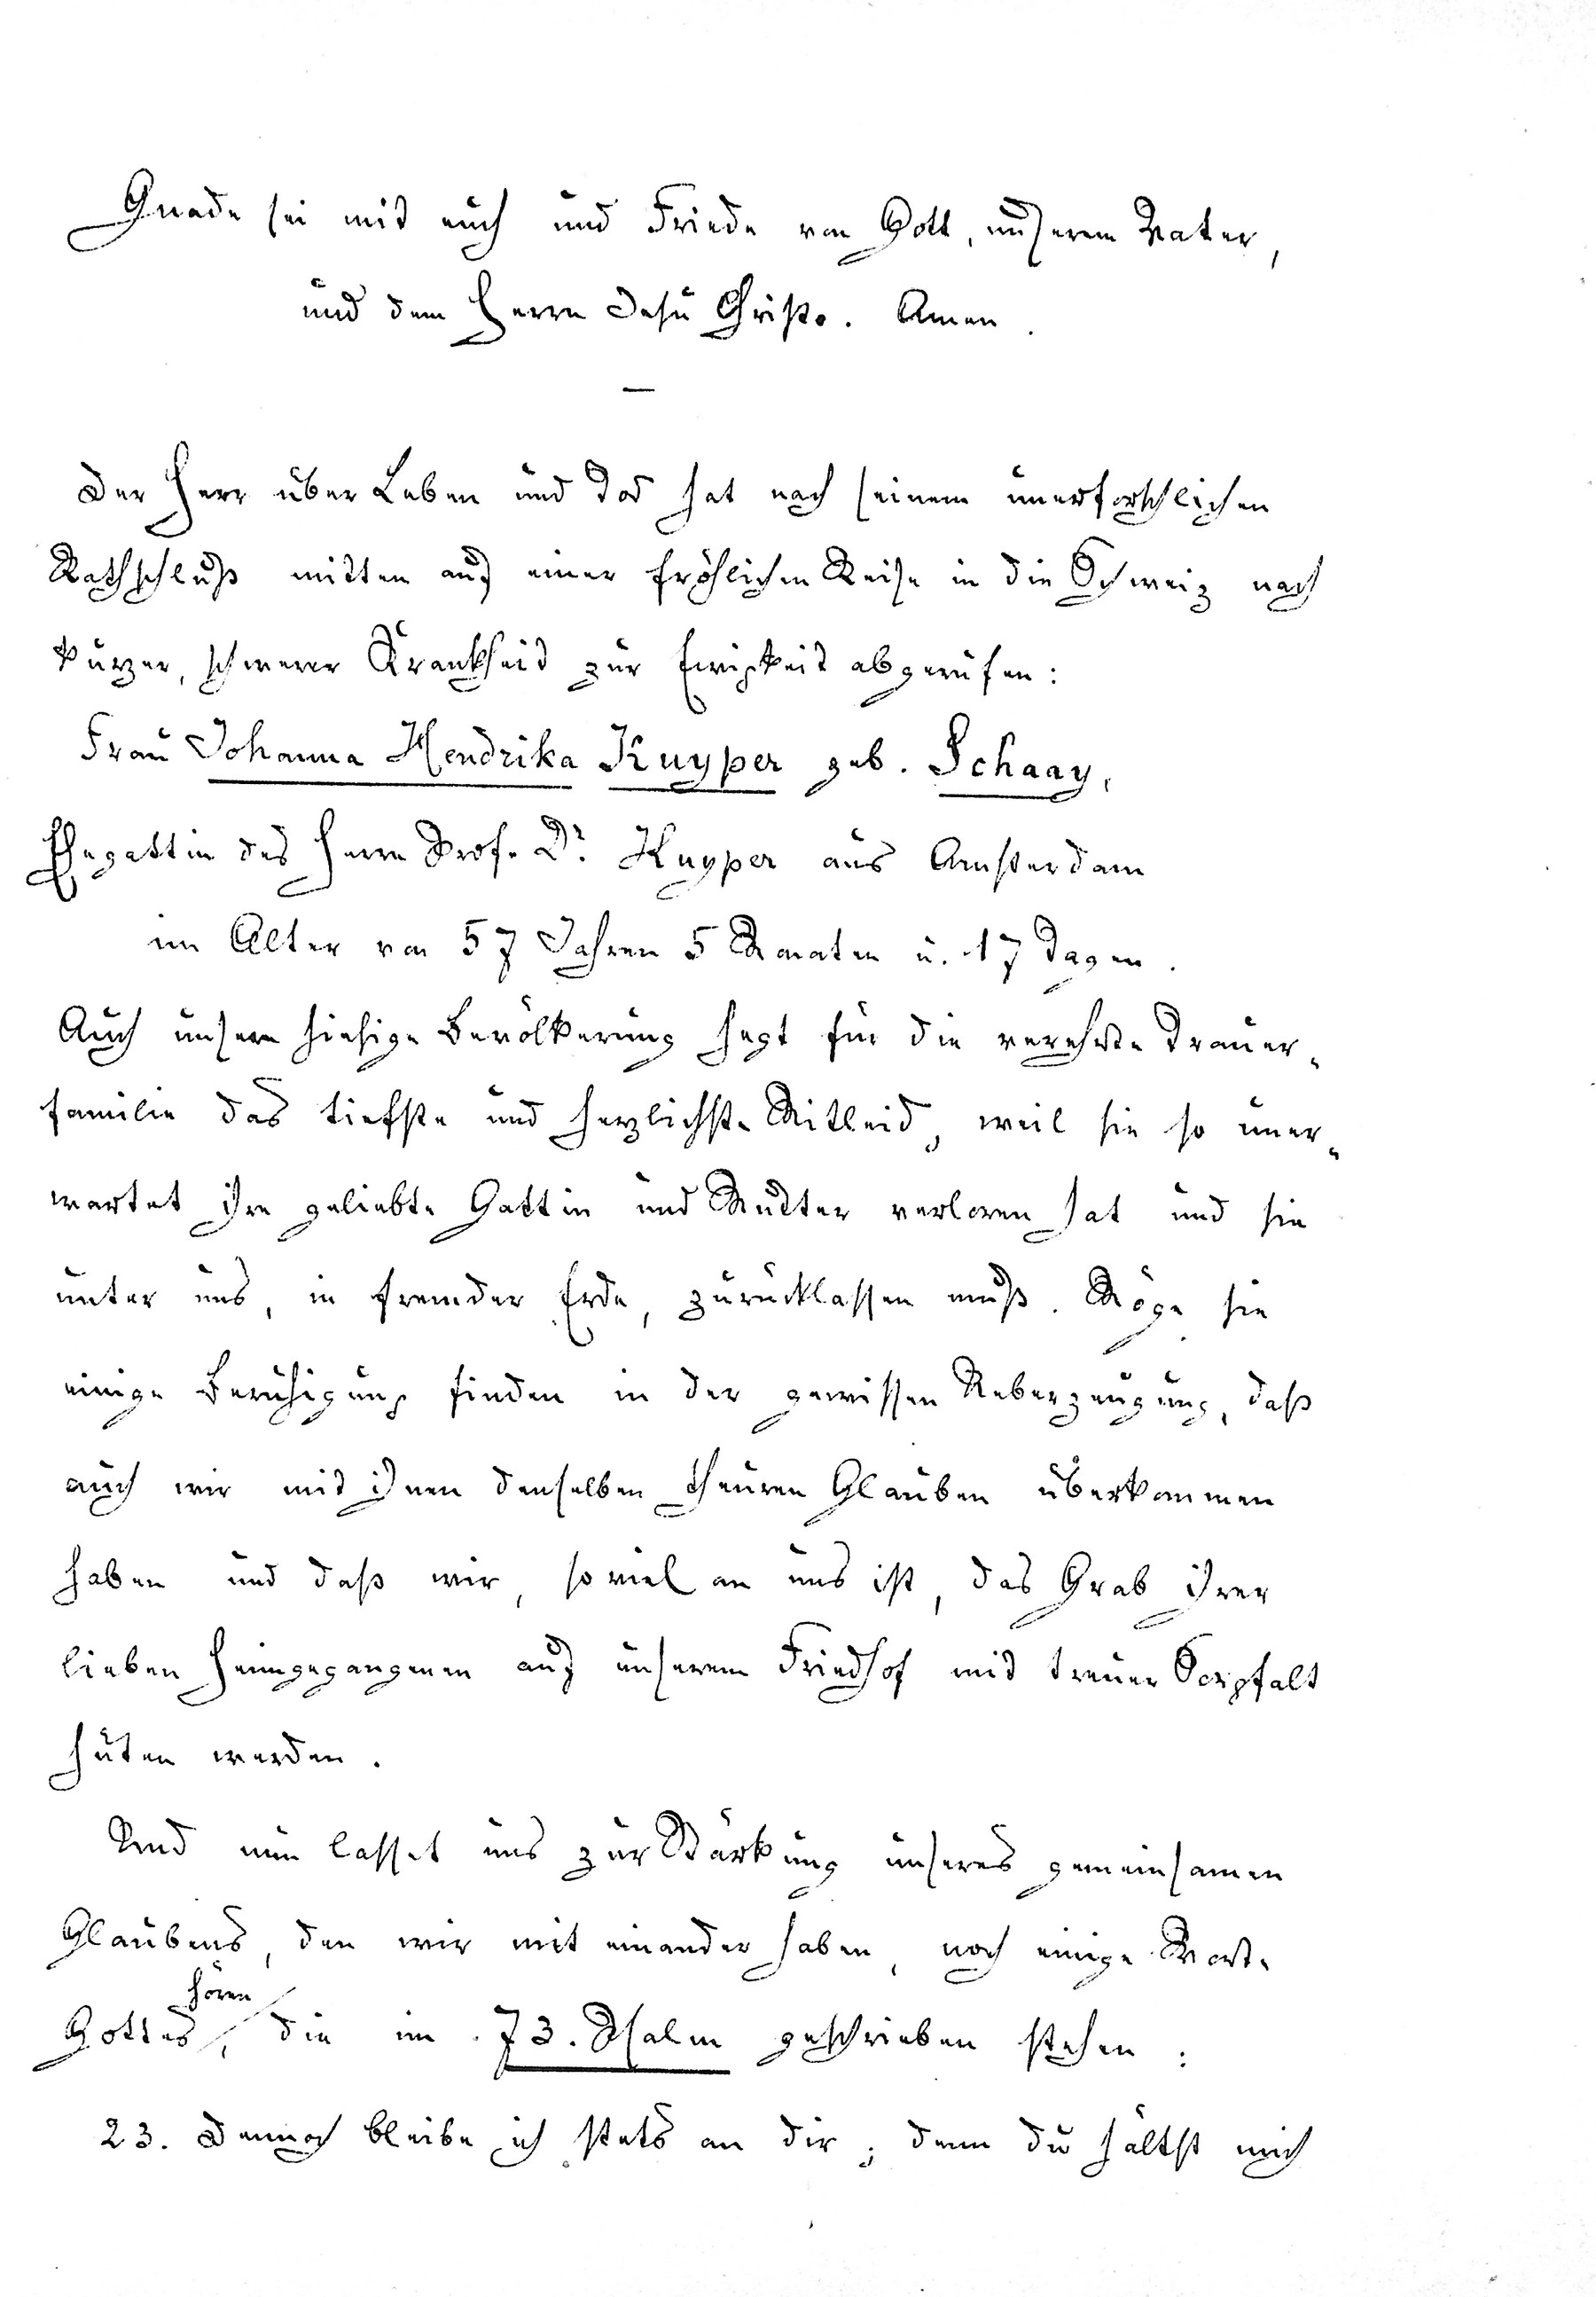 Gnade sei mit euch und Friede von Gott, unserem Vater,
und dem Herrn Jesu Christo. Amen.
—
Der Herr über Leben und Tod hat nach seinem unerforschlichen
Rathschluß mitten auf einer fröhlichen Reise in die Schweiz nach
kurzer, schwerer Krankheit zur Ewigkeit abgerufen:
Frau Johanna Hendrika Kuyper geb. Schaay,
Ehegattin des Herrn Prof. Dr. Kuyper aus Amsterdam
im Alter von 57 Jahren 5 Monaten u. 17 Tagen.
Auch unsere hiesige Bevölkerung hegt für die verehrte Trauer-
familie das tiefste und herzlichste Mitleid, weil sie so uner-
wartet ihre geliebte Gattin und Mutter verloren hat und sie
unter uns, in fremder Erde, zurücklassen muß. Möge sie
einige Beruhigung finden in der gewissen Ueberzeugung, daß
auch wir mit ihnen denselben theuren Glauben überkommen
haben und daß wir, soviel an uns ist, das Grab ihrer
lieben Heimgegangenen auf unserem Friedhof mit treuer Sorgfalt
hüten werden.
Und nun lasset uns zur Stärkung unseres gemeinsamen
Glaubens, den wir mit einander haben, noch einige Worte
hören
Gottes, die im 73. Psalm geschrieben stehen:
23. Dennoch bleibe ich stets an dir; denn du hältst mich